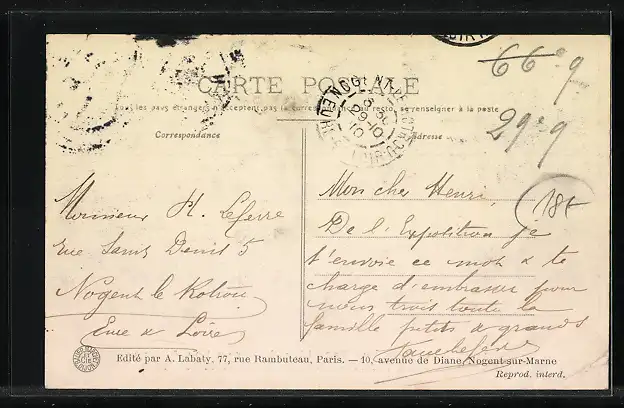 CARTE POSTALE
Tous les pays étrangers n'acceptent pas la correspondance au recto, se renseigner à la poste
Correspondance
Adresse
66 9
29 9
18f
NOGENT-LE-ROTROU
EURE-ET-LOIR
29-10
10
Monsieur H. Lefevre
rue Saint Denis 5
Nogent le Rotrou
Eure & Loire
Mon cher Henri,
De l'Exposition je
t'envoie ce mot & te
charge d'embrasser pour
nous trois toute la
famille petits & grands
Edité par A. Labaty, 77, rue Rambuteau, Paris. — 10, avenue de Diane, Nogent-sur-Marne
Reprod. interd.